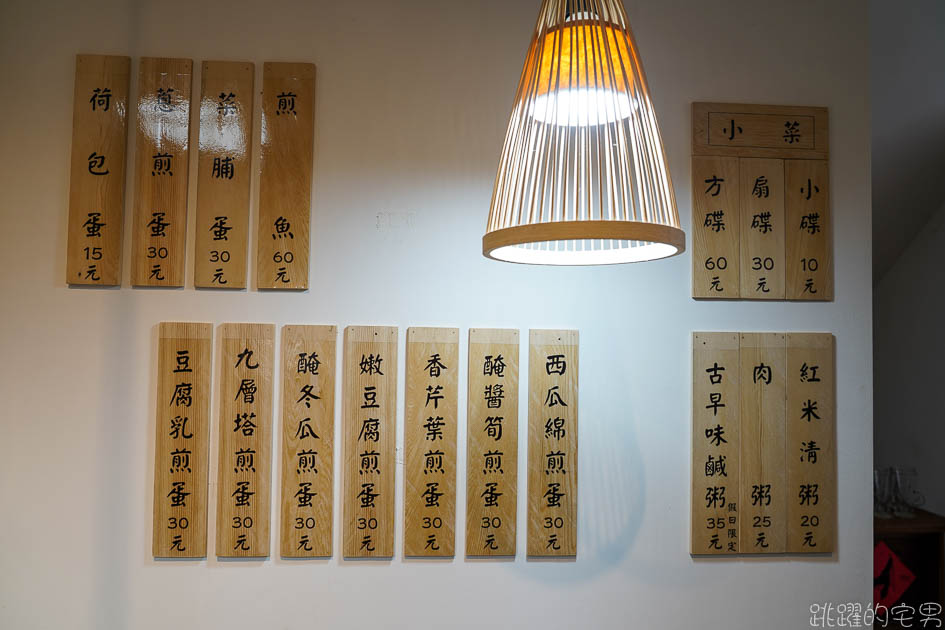 煎魚60元
菜脯蛋30元
蔥煎蛋30元
荷包蛋15元
小菜
小碟10元
扇碟30元
方碟60元
西瓜綿煎蛋30元
醃醬筍煎蛋30元
香芹葉煎蛋30元
嫩豆腐煎蛋30元
醃冬瓜煎蛋30元
九層塔煎蛋30元
豆腐乳煎蛋30元
紅米清粥20元
肉粥25元
古早味鹹粥35元
假日限定
跳躍的宅男